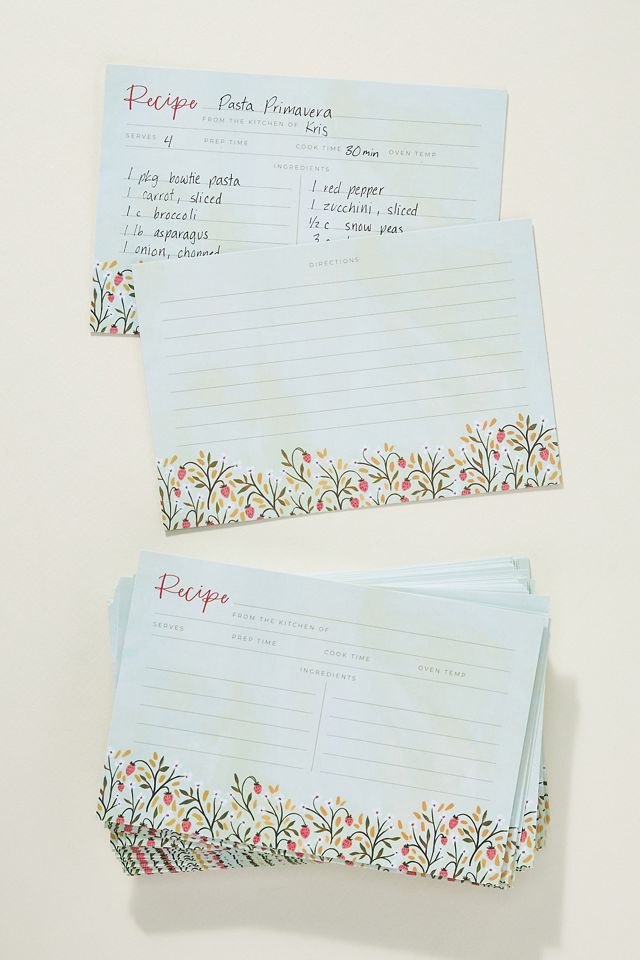 Recipe Pasta Primavera
FROM THE KITCHEN OF Kris
SERVES 4 PREP TIME COOK TIME 30 min OVEN TEMP
INGREDIENTS
1 pkg bowtie pasta
1 carrot, sliced
1 c broccoli
1 lb asparagus
1 onion, chopped
1 red pepper
1 zucchini, sliced
1/2 c snow peas
3
DIRECTIONS
Recipe
FROM THE KITCHEN OF
SERVES PREP TIME COOK TIME OVEN TEMP
INGREDIENTS